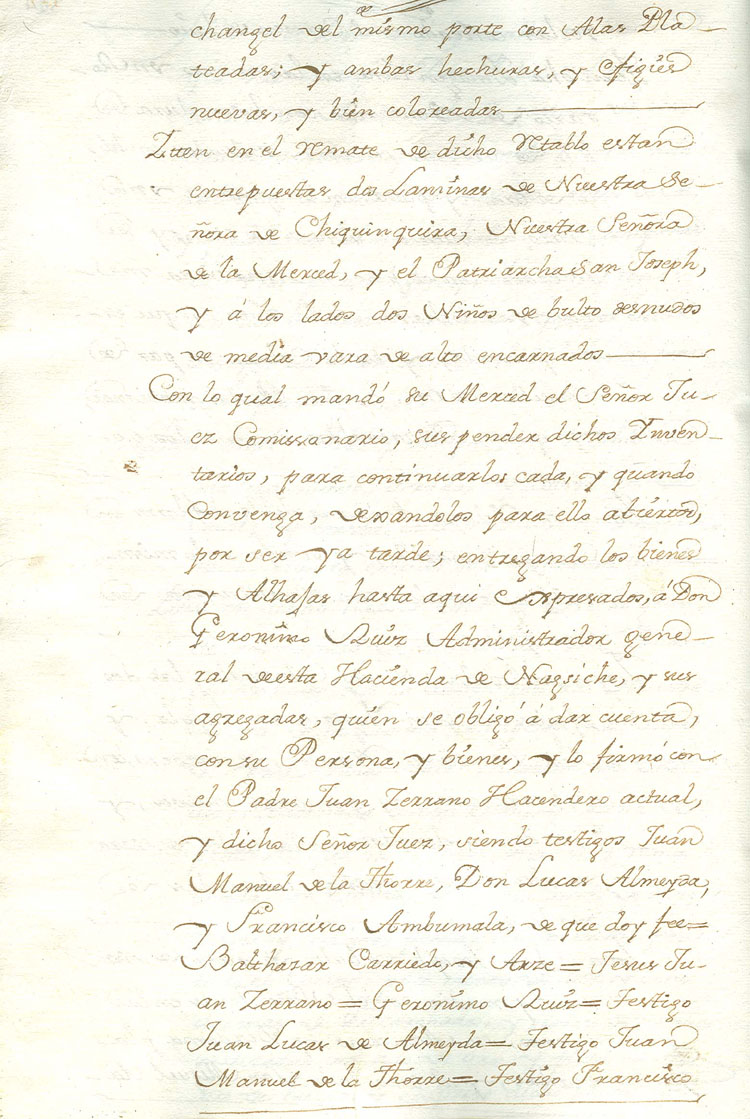 changel del mismo porte con Alas Pla-
teadas; y ambas hechuras, y efigies
nuevas, y bien coloreadas
Iten en el remate de dicho retablo estan
entrepuestas dos Laminas de Nuestra Se-
ñora de Chiquinquira, Nuestra Señora
de la Merced, y el Patriarcha San Joseph,
y á los lados dos Niños de bulto desnudos
de media vara de alto encarnados
Con lo qual mandó su Merced el Señor Ju-
ez Comissonario, suspender dichos Inven-
tarios, para continuarlos cada, y quando
Convenga, dexandolos para ello abiertos,
por ser ya tarde; entregando los bienes
y Alhajas hasta aqui expresados, á Don
Geronimo Ruiz Administrador gene-
ral de esta Hacienda de Nagsiche, y sus
agregadas, quien se obligó á dar cuenta,
con su Persona, y bienes, y lo firmó con
el Padre Juan Zerrano Hacendero actual,
y dicho Señor Juez, siendo testigos Juan
Manuel de la Thorre, Don Lucas Almeyda,
y Francisco Ambumala, de que doy fee=
Balthazar Carriedo, y Arze= Jesus Ju-
an Zerrano= Geronimo Ruiz= Testigo
Juan Lucas de Almeyda= Testigo Juan
Manuel de la Thorre= Testigo Francisco